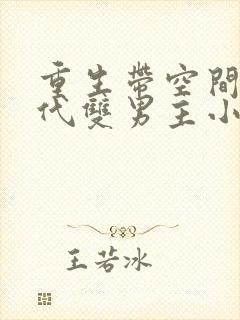 重生帶空間
代雙男主小
王若冰